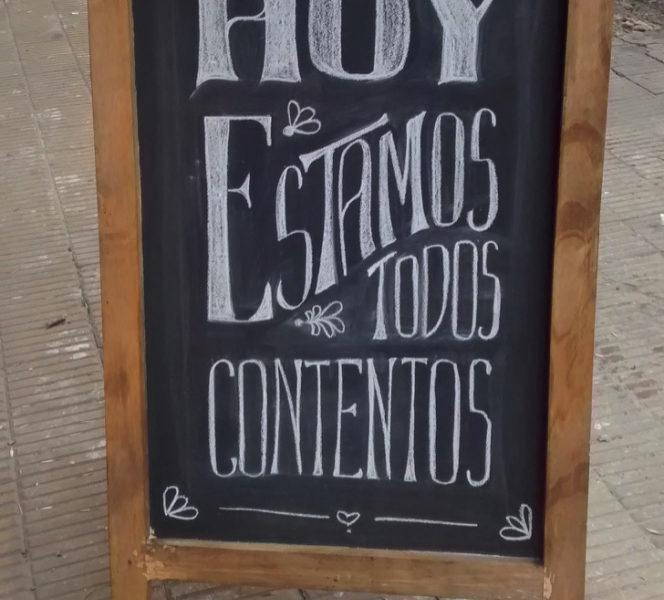 HOY
ESTAMOS
TODOS
CONTENTOS